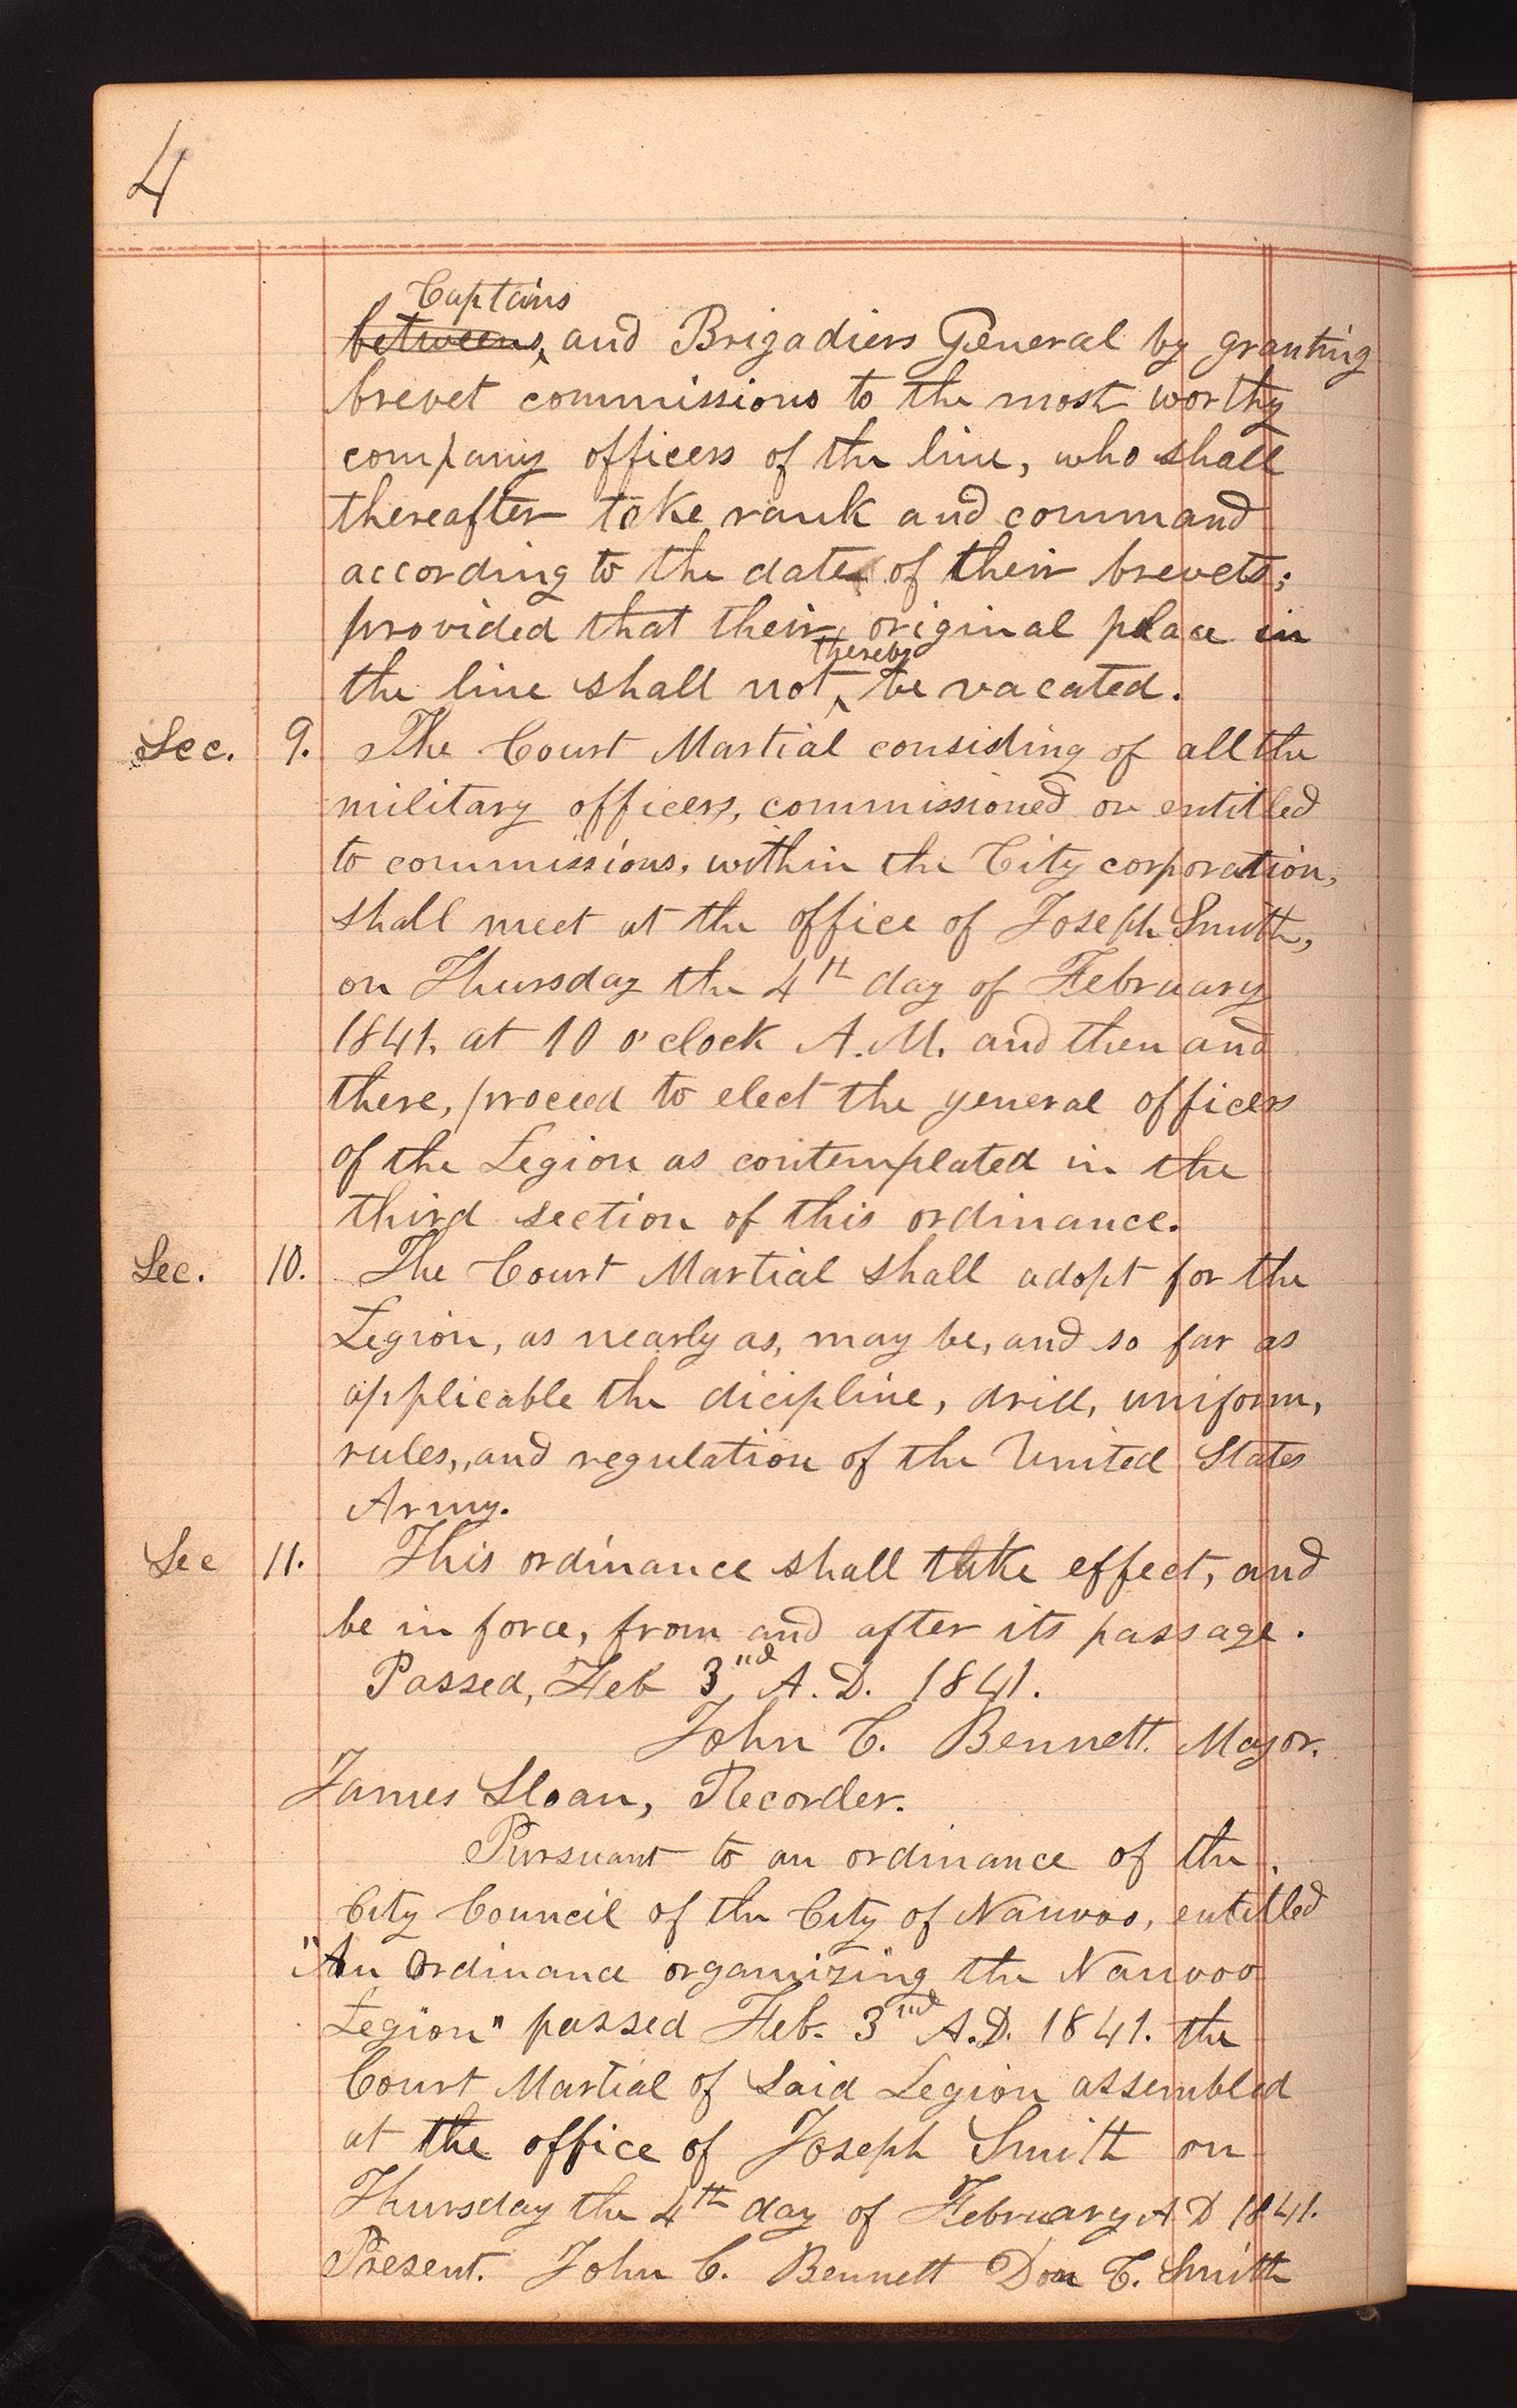 4
Captains
betweens, and Brigadiers General by granting
brevet commissions to the most worthy
company officers of the line, who shall
thereafter take rank and command
according to the date of their brevets;
provided that their original place in
thereby
the line shall not ‸ be vacated.
Sec. 9. The Court Martial consisting of all the
military officers, commissioned or entitled
to commissions, within the City corporation,
shall meet at the office of Joseph Smith,
on Thursday the 4th day of February
1841, at 10 o'clock A.M. and then and
there, proceed to elect the general officers
of the Legion as contemplated in the
third section of this ordinance.
Sec. 10. The Court Martial shall adopt for the
Legion, as nearly as, may be, and so far as
applicable the dicipline, drill, uniform,
rules, and regulation of the United States
Army.
Sec 11. This ordinance shall take effect, and
be in force, from and after its passage.
Passed, Feb 3nd A.D. 1841.
John C. Bennett. Mayor.
James Sloan, Recorder.
Pursuant to an ordinance of the
City Council of the City of Nauvoo, entitled
"An Ordinance organizing the Nauvoo
Legion" passed Feb. 3nd A.D. 1841. the
Court Martial of Said Legion assembled
at the office of Joseph Smith on
Thursday the 4th day of February A D 1841.
Present. John C. Bennett Don C. Smith